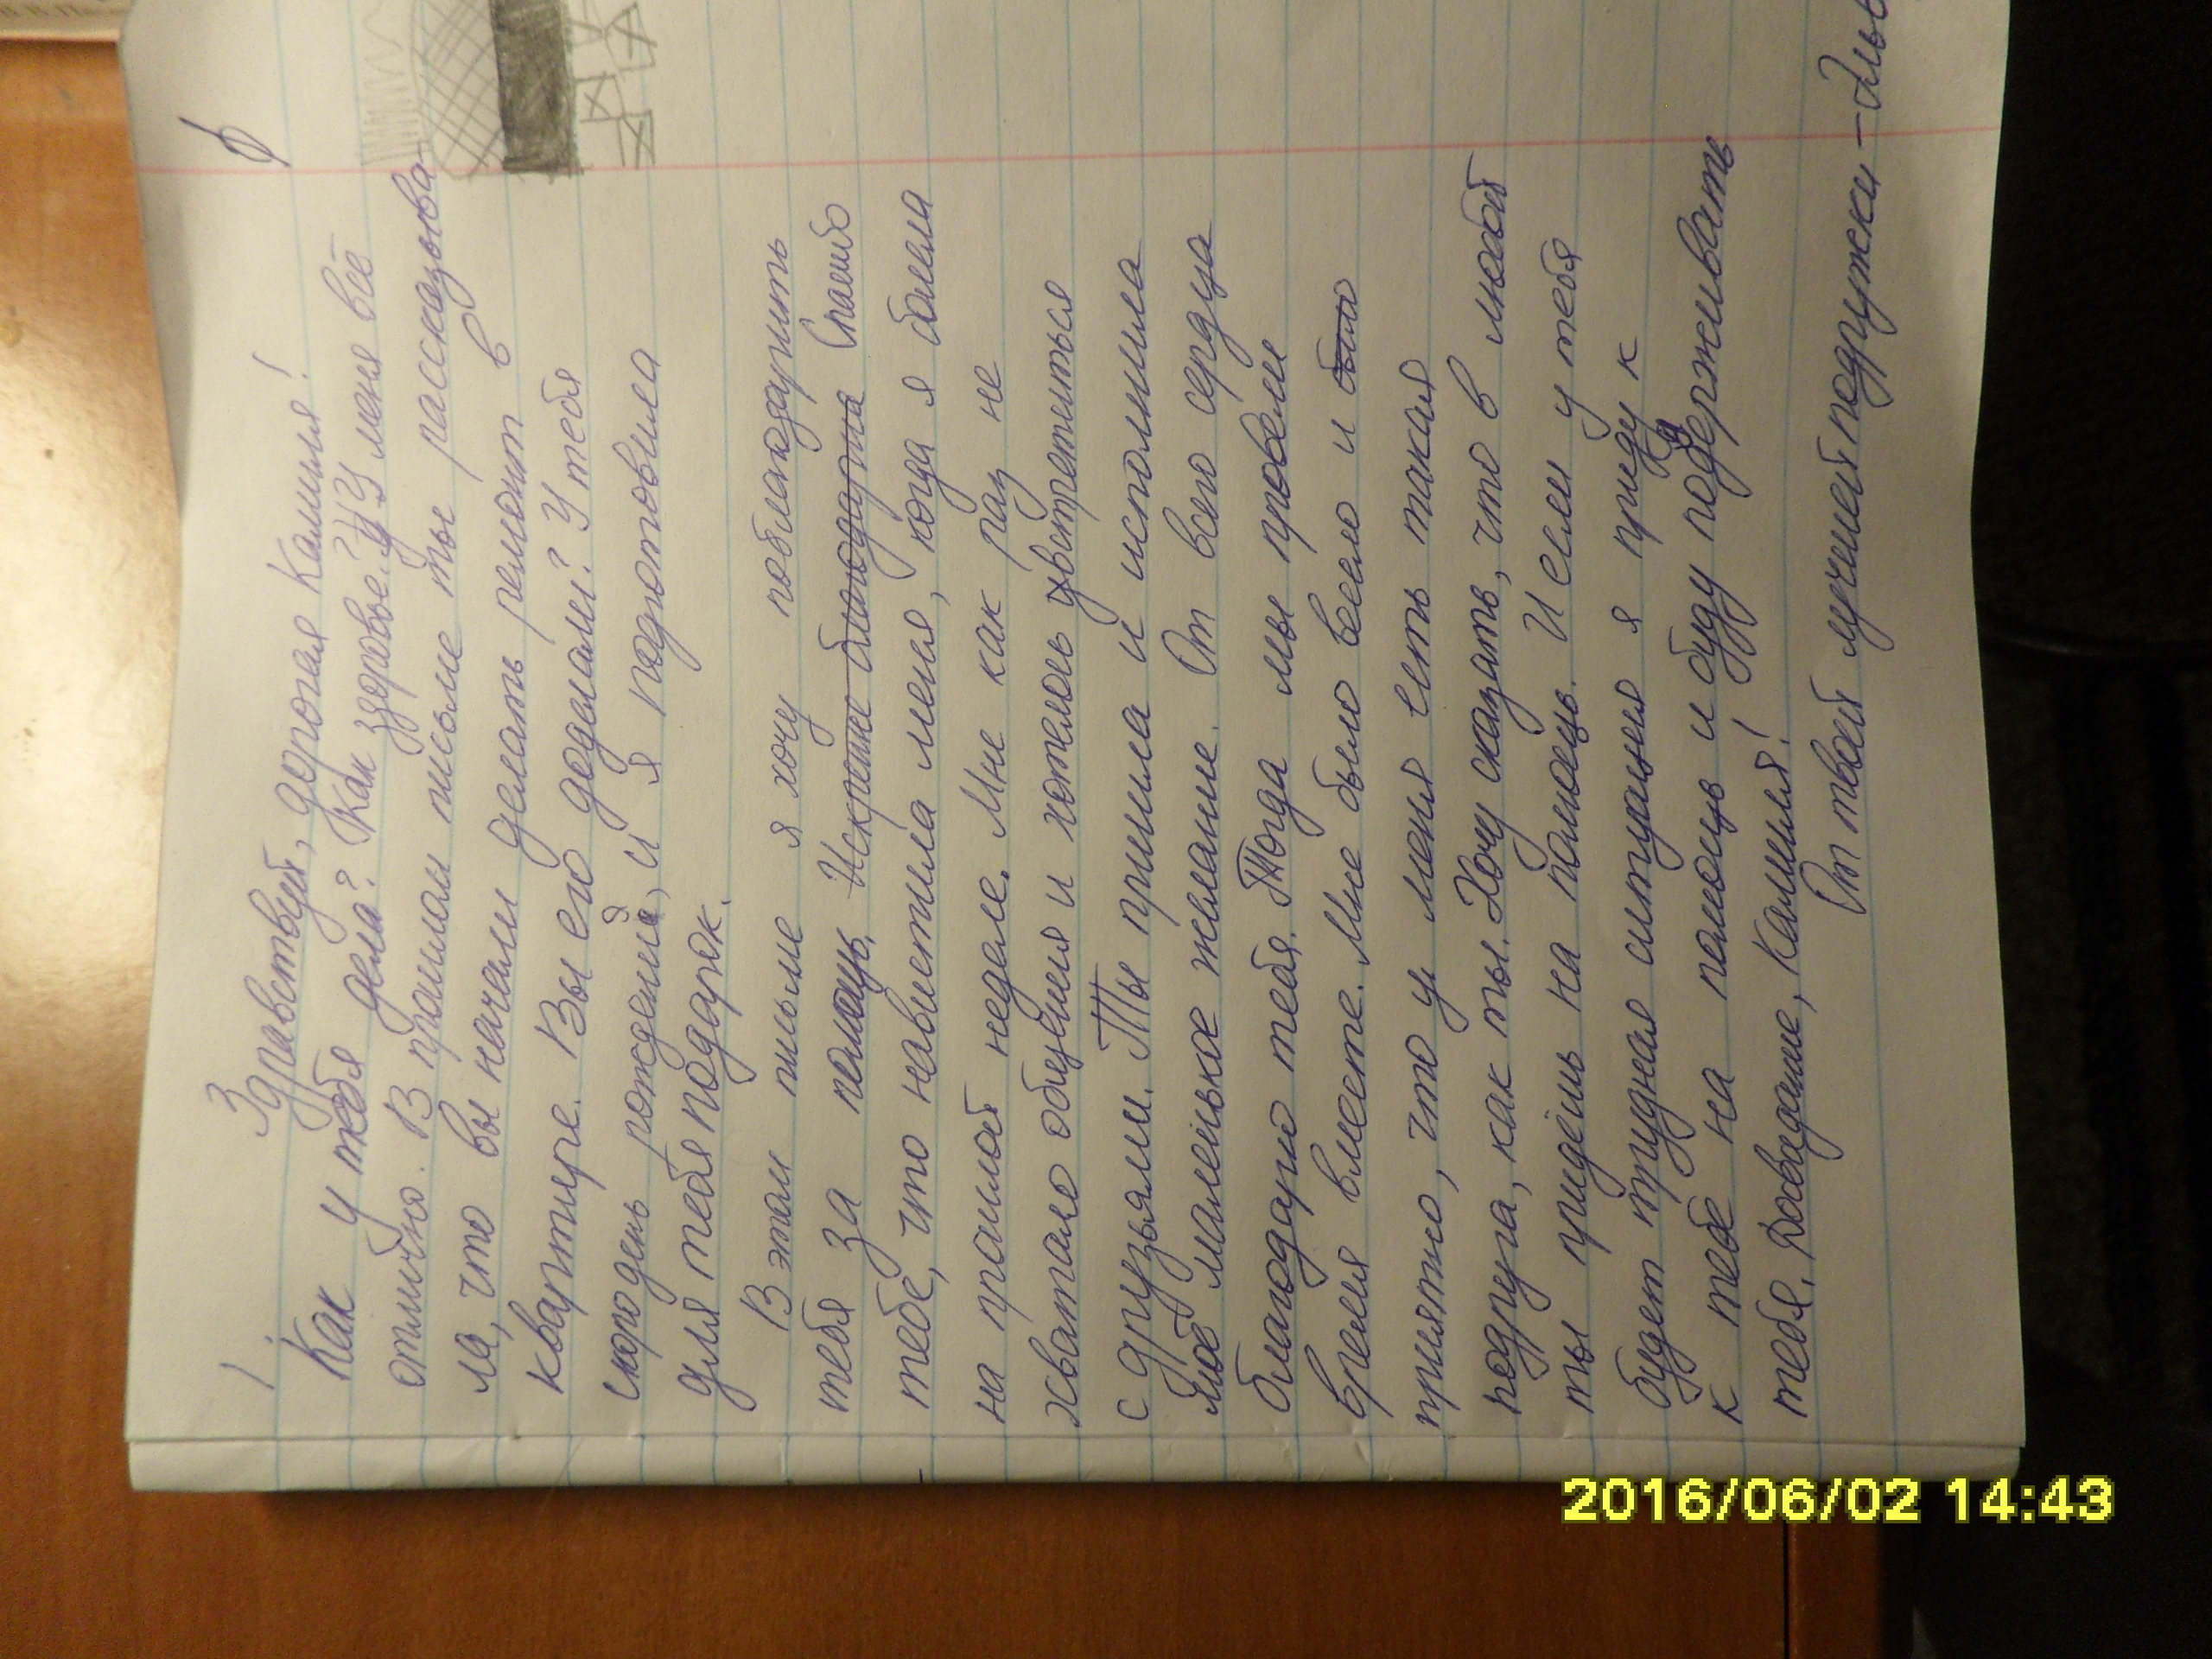 Здравствуй, дорогая Камиля!
Как у тебя дела? Как здоровье? У меня всё
отлично. В прошлом письме ты рассказыва-
ла, что вы начали делать ремонт в
квартире. Вы его доделали? У тебя
скоро день рождения, и я подготовила
для тебя подарок.
В этом письме я хочу поблагодарить
тебя за помощь. Искренне благодарна Спасибо
тебе, что навестила меня, когда я болела
на прошлой неделе. Мне как раз не
хватало общения и хотелось увстретиться
с друзьями. Ты пришла и исполнила
моё маленькое желание. От всего сердца
благодарю тебя. Тогда мы провели
время вместе. Мне было весело и было
приятно, что у меня есть такая
подруга, как ты. Хочу сказать, что в любой
ты придёшь на помощь. И если у тебя
будет трудная ситуация я приду к
к тебе на помощь и буду подерживать
тебя. Досвидание, Камиля!
От твоей лучшей подружки -
2016/06/02 14:43